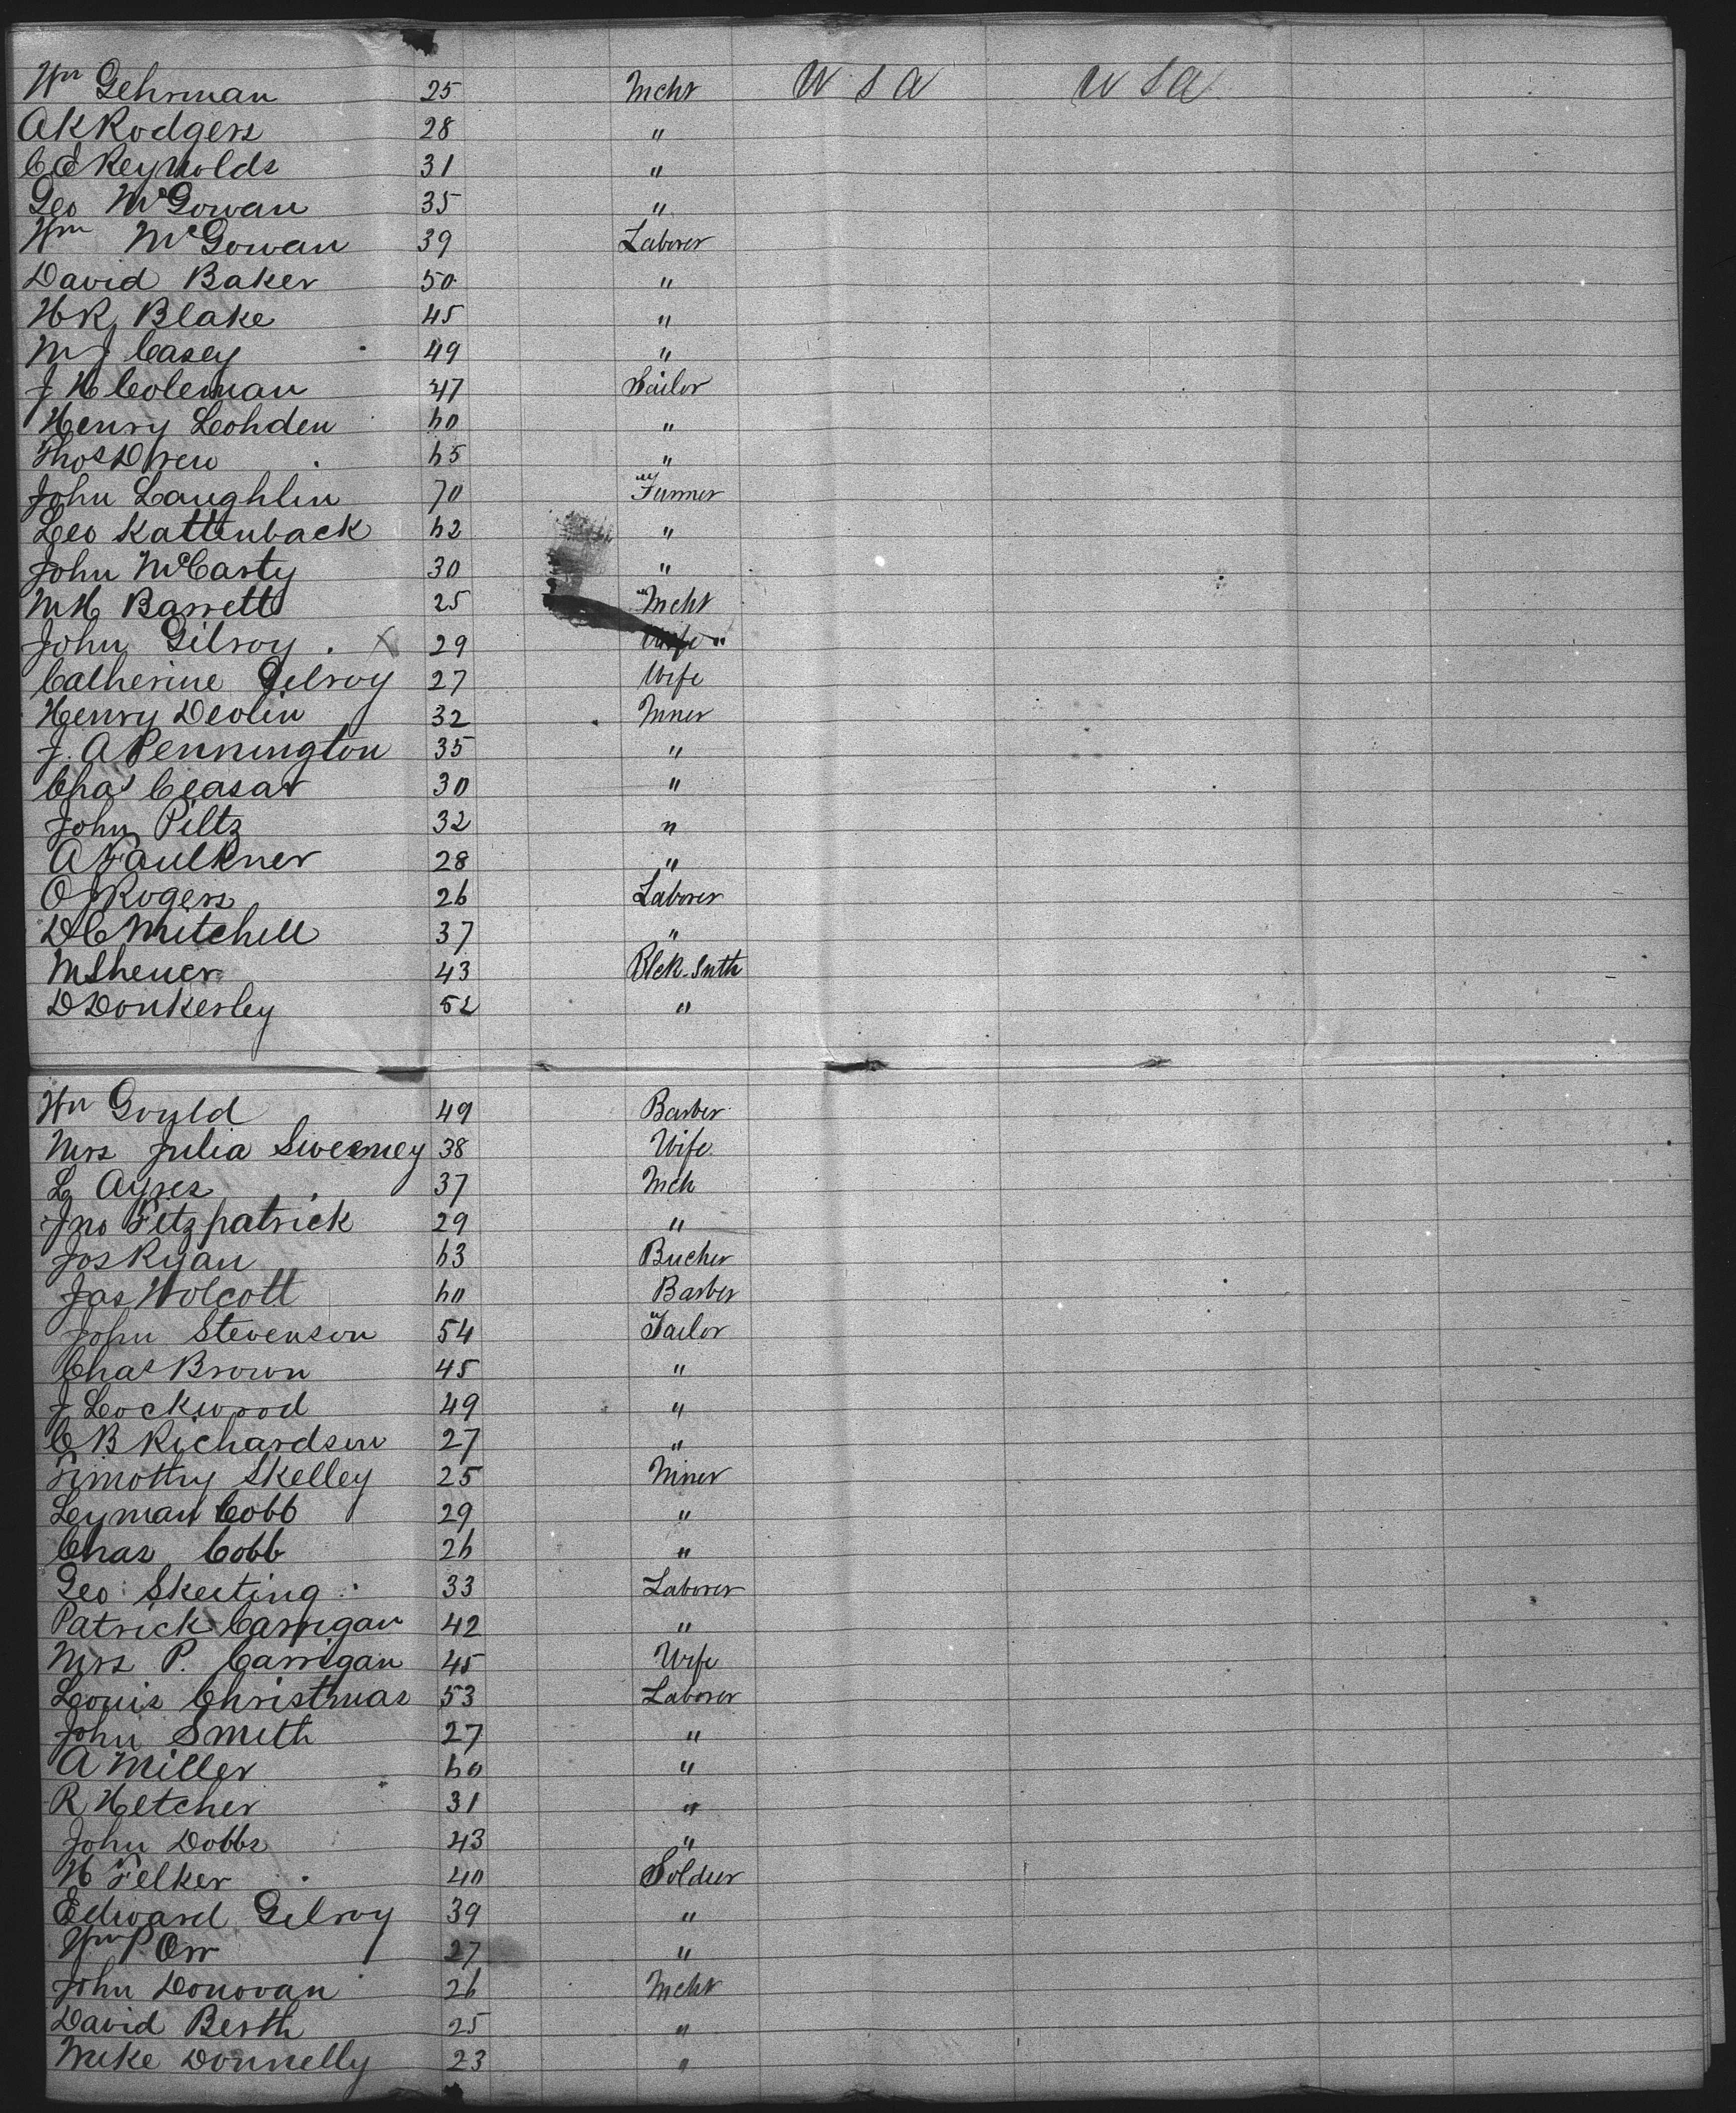 Wm Gehrman 25 Mcht U S A U S A
A K Rodgers 28 "
C E Reynolds 31 "
Geo McGowan 35 "
Wm McGowan 39 Laborer
David Baker 50 "
H R Blake 45 "
M J Casey 49 "
J H Coleman 47 Sailor
Henry Lohden 60 "
Thos Drew 65 "
John Laughlin 70 " Farmer
Leo Kattenback 62 "
John McCarty 30 "
M H Barrett 25 " Mcht
John Gilroy . X 29 "
Catherine Gilroy 27 Wife
Henry Devlin 32 Miner
J. A Pennington 35 "
Chas Ceasar 30 "
John Piltz 32 "
A Faulkner 28 "
O J Rogers 26 Laborer
D C Mitchell 37 "
M Sheuer 43 Blck-Smth
D Donkersley 52 "
Wm Gould 49 Barber
Mrs Julia Sweeney 38 Wife
L Ayres 37 Mch
Jno Fitzpatrick 29 "
Jos Ryan 63 Bucher
Jas Wolcott 60 Barber
John Stevenson 54 Tailor
Chas Brown 45 "
J Lockwood 49 "
C B Richardson 27 "
Timothy Skelley 25 Miner
Leyman Cobb 29 "
Chas Cobb 26 "
Geo Skeeting 33 Laborer
Patrick Carrigan 42 "
Mrs P. Carrigan 45 Wife
Louis Christmas 53 Laborer
John Smith 27 "
A Miller 60 "
R Hetcher 31 "
John Dobbs 43 "
H Felker 40 Soldier
Edward Gilroy 39 "
Wm P Orr 27 "
John Donovan 26 Mcht
David Berth 25 "
Mike Donnelly 23 "